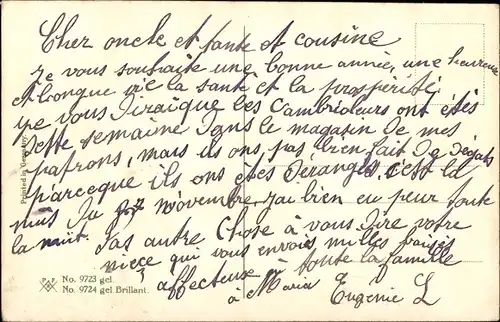 Cher oncle et tante et cousine
je vous souhaite une bonne année, une heureuse
et longue vie la santé et la prospérité
je vous diraique les cambrioleurs ont étés
cette semaine dans le magasin de mes
patrons, mais ils ont pas bien fait de dégats
parceque ils ont étés dérangés. c'est la
nuit du novembre j'ai bien eu peur toute
la nuit. Pas autre chose à vous dire votre
niece qui vous envois milles baisés
affectueux à toute la famille
à Maria Eugenie L
Printed in Germany
No. 9723 gel.
No. 9724 gel Brillant.